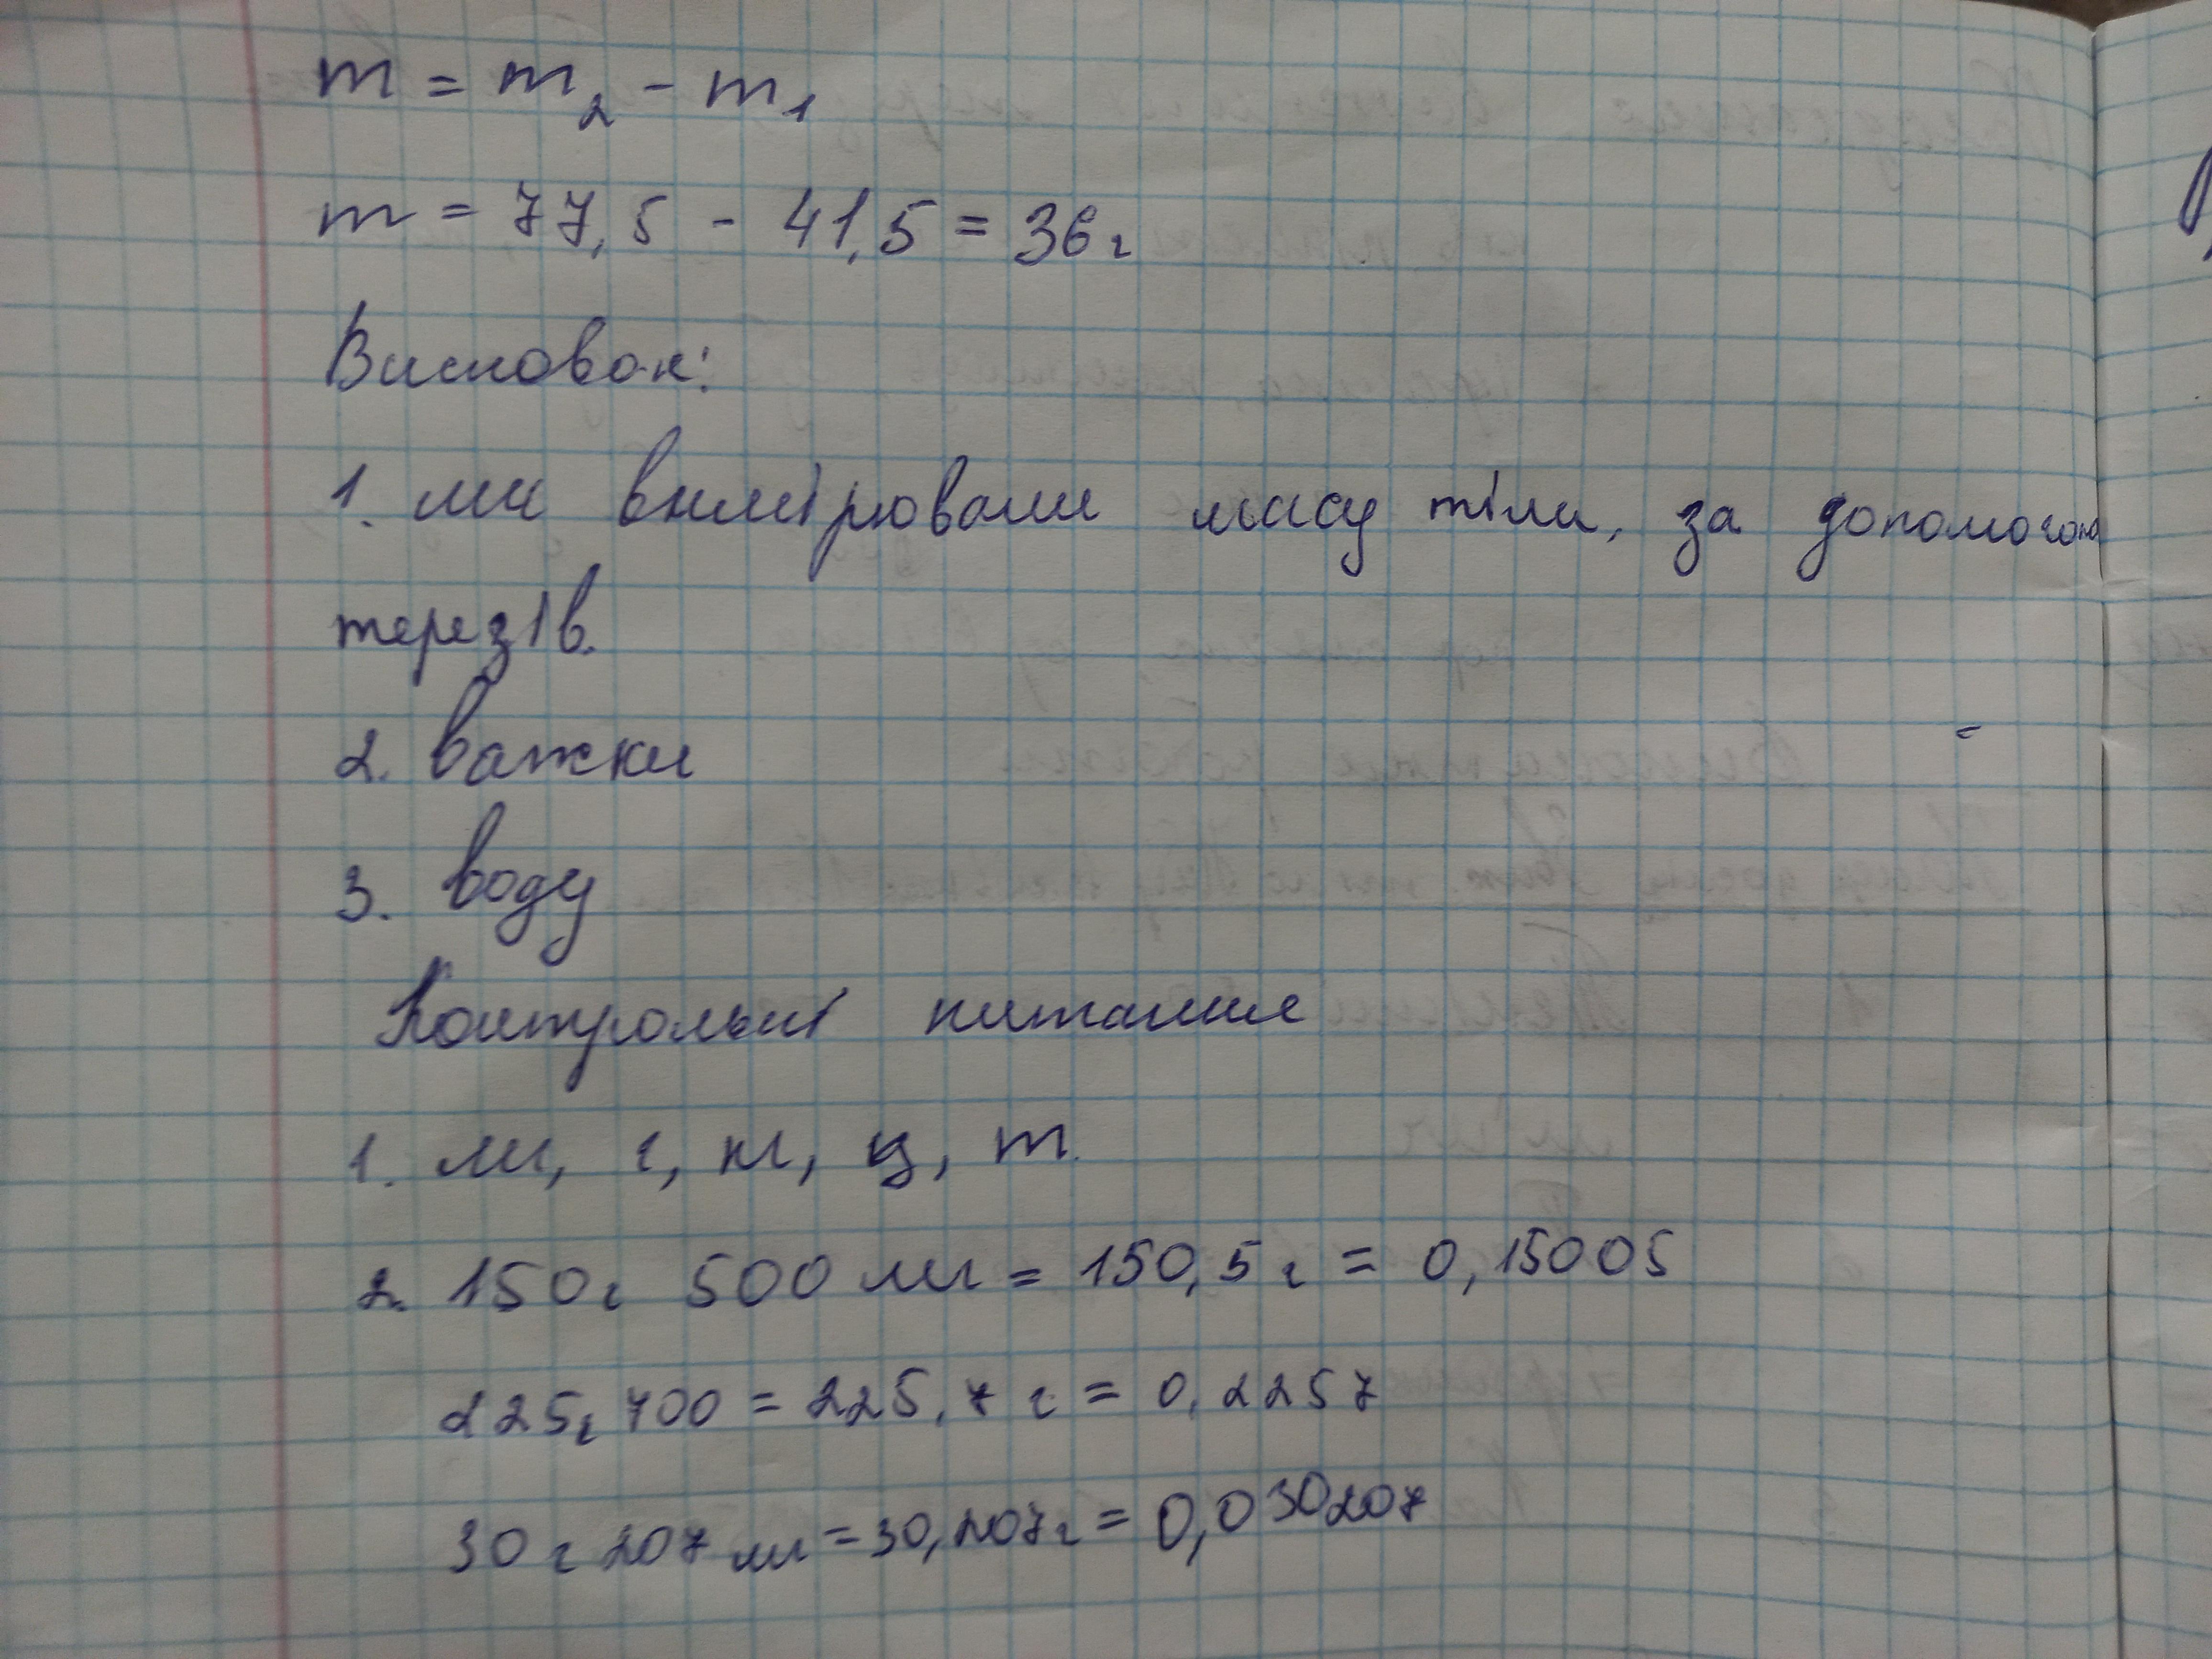 m = m₂ - m₁
m = 77,5 - 41,5 = 36 г
Висновок:
1. ми вимірювали масу тіла, за допомогою
терезів.
2. важки
3. воду
Контрольні питання
1. мг, г, кг, ц, т.
2. 150 г 500 мг = 150,5 г = 0,15005
225г 700 = 225,7 г = 0,2257
30 г 207 мг = 30,207 г = 0,030207